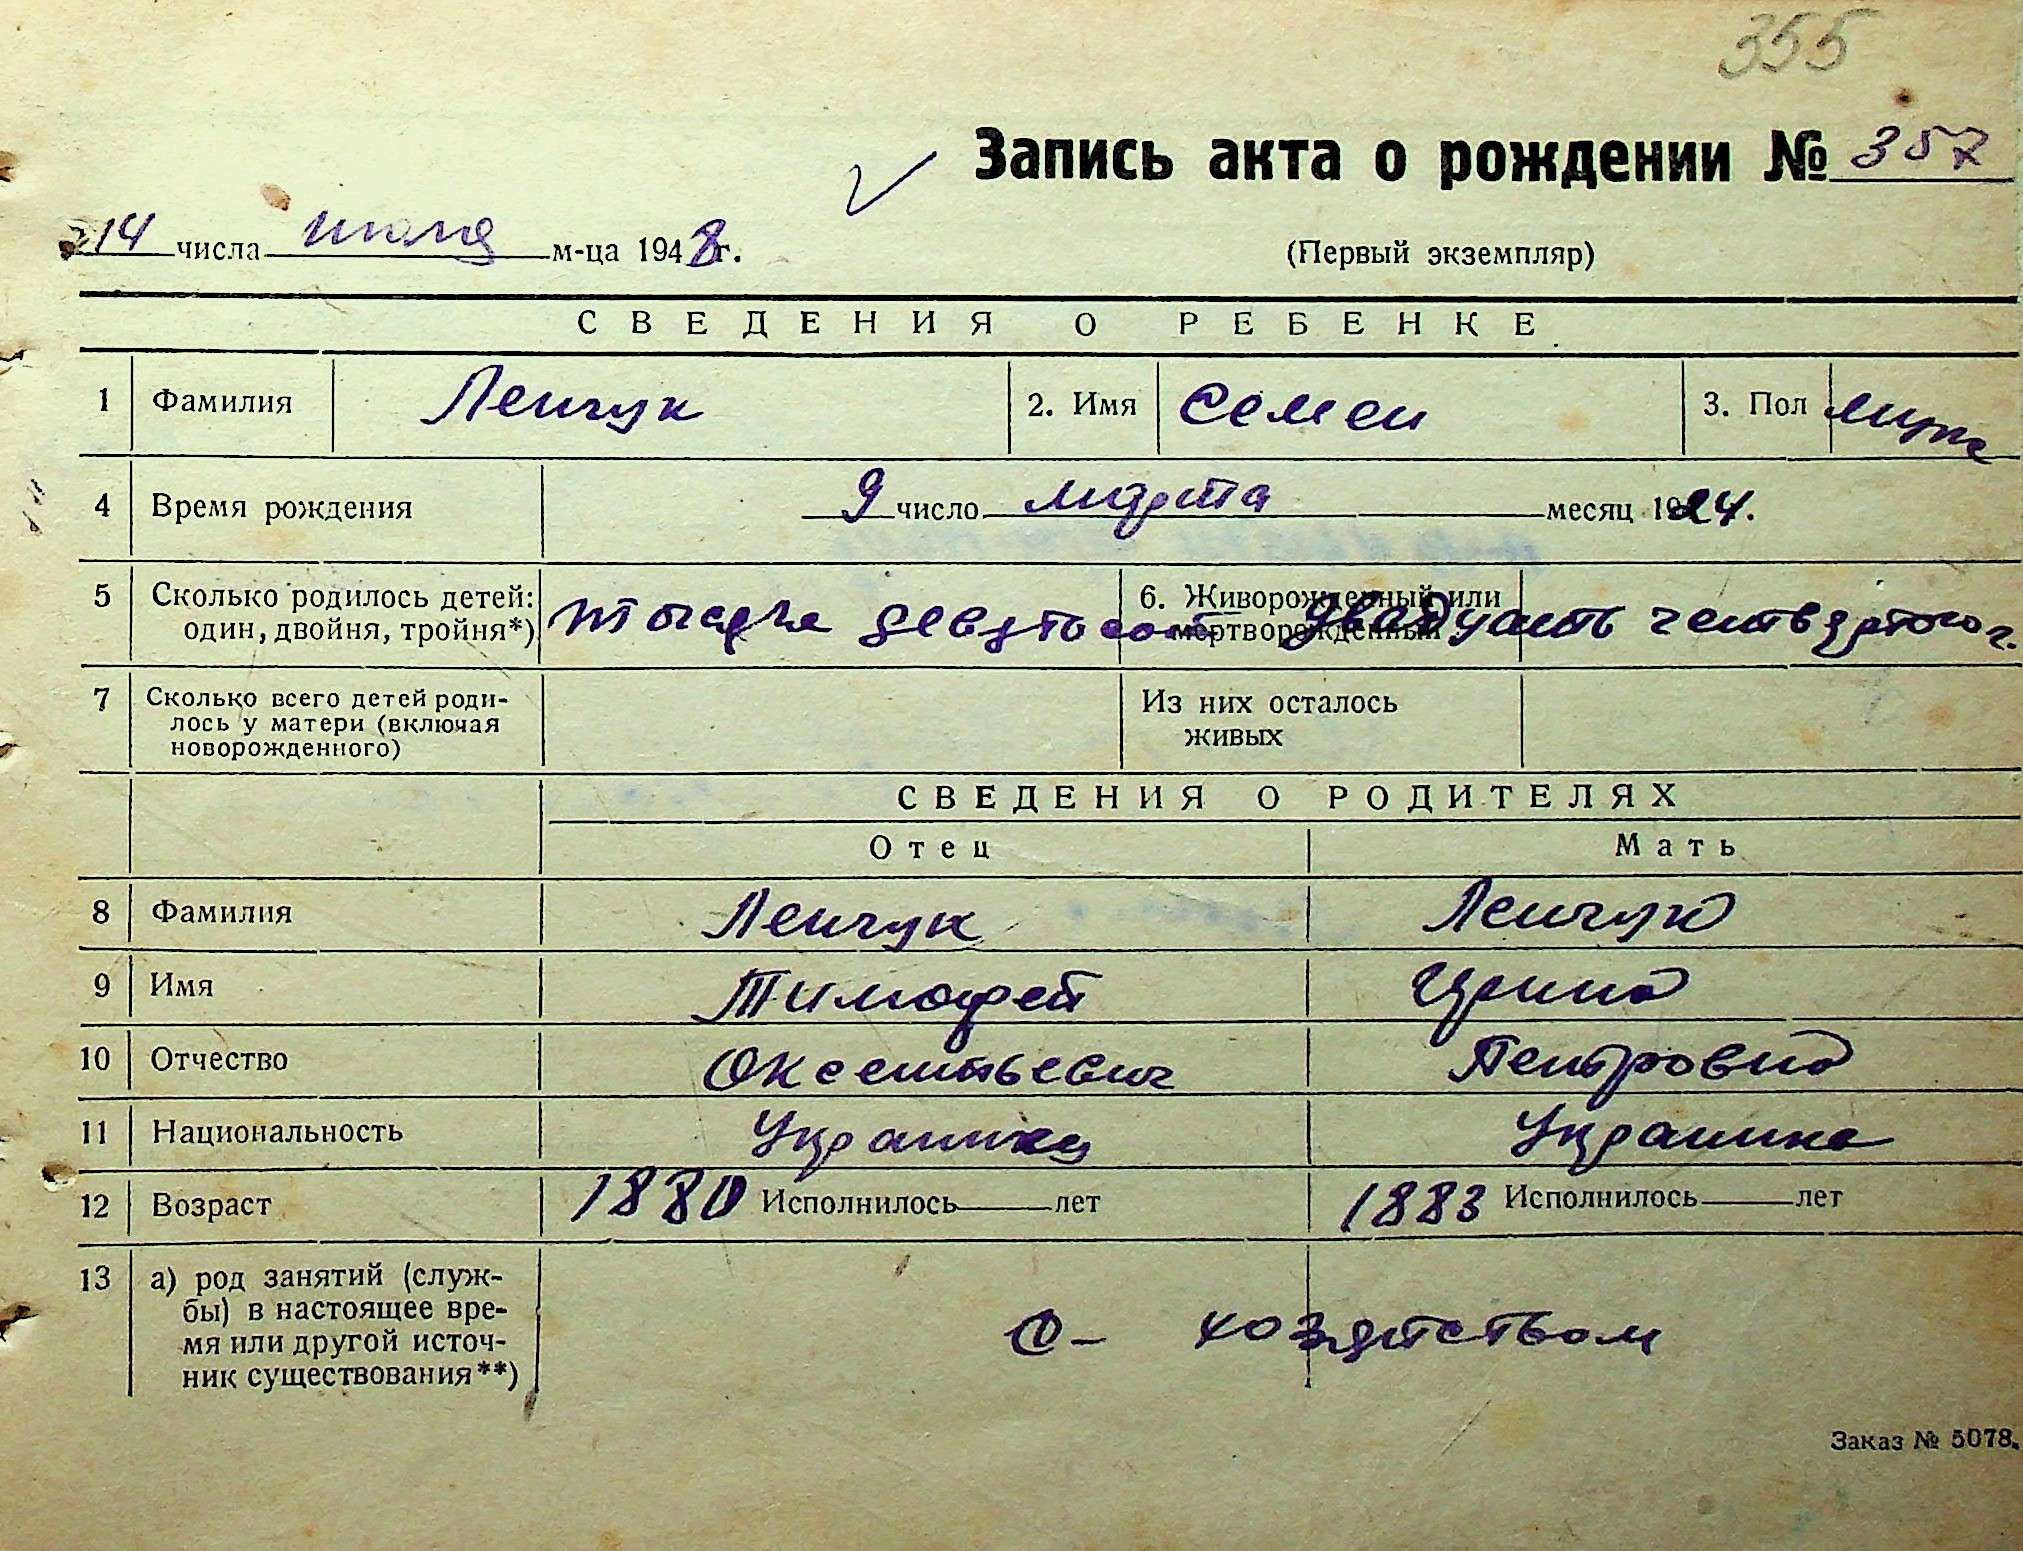 355
Запись акта о рождении № 357
14 числа июля м-ца 1948 г.
(Первый экземпляр)
СВЕДЕНИЯ О РЕБЕНКЕ
1 Фамилия Ленчук 2. Имя Семен 3. Пол муж
4 Время рождения 9 число марта месяц 1924.
5 Сколько родилось детей: один, двойня, тройня*) 6. Живорожденный или мертворожденный
тысяча девятьсот двадцать четвертого г.
7 Сколько всего детей роди-
лось у матери (включая
новорожденного)
Из них осталось
живых
СВЕДЕНИЯ О РОДИТЕЛЯХ
Отец Мать
8 Фамилия Ленчук Ленчук
9 Имя Тимофей Ирина
10 Отчество Оксентьевич Петровна
11 Национальность Украинец Украинка
12 Возраст 1880 Исполнилось лет 1883 Исполнилось лет
13 а) род занятий (служ-
бы) в настоящее вре-
мя или другой источ-
ник существования**)
хозяйством
Заказ № 5078.